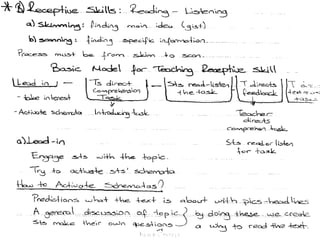 * ① Receptive Skills: Reading - Listening
a) Skimming: finding main idea (gist)
b) scanning: finding specific information.
Process must be from skim to scan.
Basic Model for Teaching Receptive Skill
Lead in
- take interest
- Activate schemata
Ts direct
Comprehension
Task
Introducing task
Sts read-listen
the task
T directs
feedback
Teacher
directs
comprehen. task
Sts read or listen
for task
T
text
a) Lead-in
Engage sts with the topic.
Try to activate sts' schemata
How to Activate Schematas?
Predictions what the text is about with pics-headlines
A general discussion of topic } by doing these we create
Sts make their own questions a way to read the text.